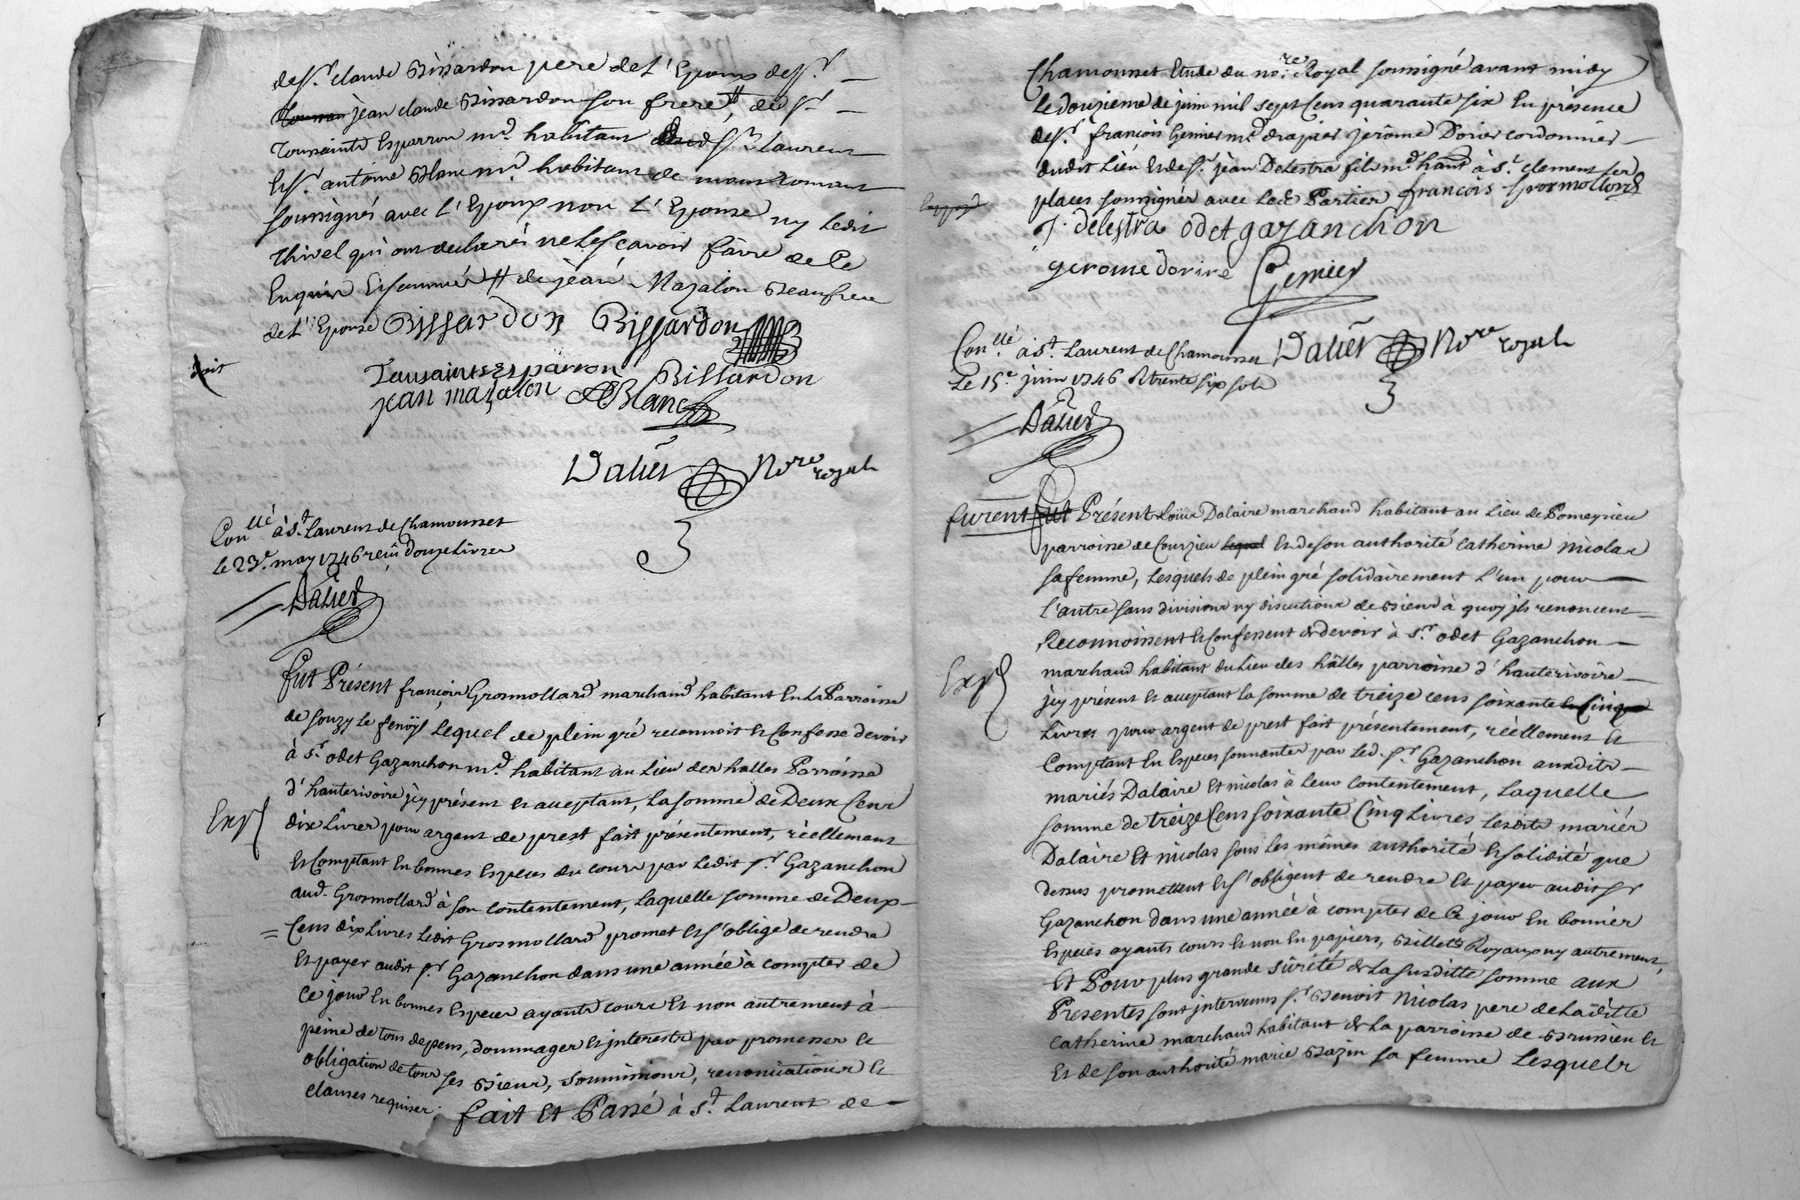 de sr. claude Bissardon pere de L'Epoux de sr.
jean claude Bissardon son frere #, de sr.
Toussaints Esparron md. habitant dud st. Laurens
Et sr. antoine Blanc md. habitant de
soussignés avec L'Epoux non L'Epouse ny Ledit
thivel qui ont declarés ne Le scavoir faire de Ce
Enquis Et sommés # de jean Mazalon Beaufrere
de L'Epouse Bissardon Bissardon
Toussaints Esparron Bissardon
jean mazalon A Blanc
Dalier Nore royal
Conllé à st. Laurens de Chamousset
le 23e. may 1746 reçû douze Livres
Dalier
fut Présent françois Grosmollard marchand habitant En La Parroisse
de souzy Le fenoyl Lequel de plein gré reconnoit Et Confesse devoir
à sr. odet Gazanchon md. habitant au Lieu des halles Parroisse
d'hauterivoire jcy présent Et acceptant, La somme de Deux Cens
Expd
dix Livres pour argent de prest fait présentement, réellement
Et Comptant En bonnes Especes du cours par Ledit sr. Gazanchon
aud. Grosmollard à son contentement, Laquelle somme de Deux
Cens dix Livres Ledit Grosmollard promet Et s'oblige de rendre
Et payer audit sr. Gazanchon dans une année à compter de
Ce jour En bonnes Especes ayants cours Et non autrement à
peine de tous depens, dommages Et interests par promesse Et
obligation de tous ses Biens, soumissions, renonciations Et
clauses requises. fait Et Passé à st. Laurent de
Chamousset Etude du nore. Royal soussigné avant midy
Le douzieme de juin mil sept Cens quarante six En présence
de sr. françois Genier md. drapier jerôme Dorier cordonnier
dudit Lieu Et de sr. jean Delestra fils md. habt. à st. clement les
places soussignés avec Les Parties françois Grosmollard
J. delestra odet gazanchon
gerome dorire Genier
Conllé à st. Laurens de Chamousset Dalier Nore royal
Le 15e. juin 1746 R trente six sols
Dalier
furent fut Présent Louis Dalaire marchand habitant au Lieu de Pomeyrieu
parroisse de Courzieu Lequel Et de son authorité Catherine Nicolas
sa femme, Lesquels de plein gré solidairement L'un pour
L'autre sans division ny discution de Biens à quoy ils renoncent
Reconnoissent Et Confessent devoir à sr. odet Gazanchon
marchand habitant du Lieu des hâlles parroisse d'hauterivoire
Expd
jcy présent Et acceptant La somme de treize cens soixante Cinq
Livres pour argent de prest fait présentement, réellement Et
Comptant En Especes sonnantes par Led. sr. Gazanchon auxdits
mariés Dalaire Et nicolas à Leur contentement, Laquelle
somme de treize Cens soixante Cinq Livres Lesdits mariés
Dalaire Et nicolas sous Les mêmes authorité Et solidité que
dessus promettent Et s'obligent de rendre Et payer audit sr
Gazanchon dans une année à compter de Ce jour En bonnes
Especes ayants cours Et non En papiers, Billets Royaux ny autrement,
Et Pour plus grande sûreté de La susditte somme aux
Présentes sont intervenus sr. Benoit Nicolas pere de Laditte
Catherine marchand habitant de La parroisse de Brussieu Et
Et de son authorité marie Bazin sa femme Lesquels